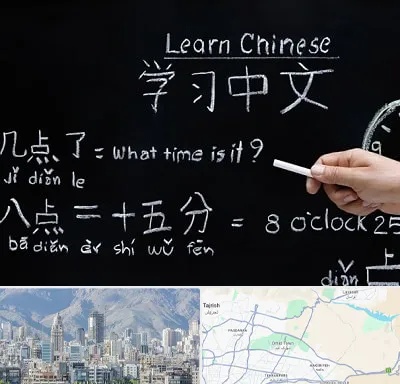 Learn Chinese
学习中文
几点了 = What time is it?
jǐ diǎn le
八点二十五分 = 8 o'clock 25
bā diǎn èr shí wǔ fēn
上
diǎn
9
Tajrish